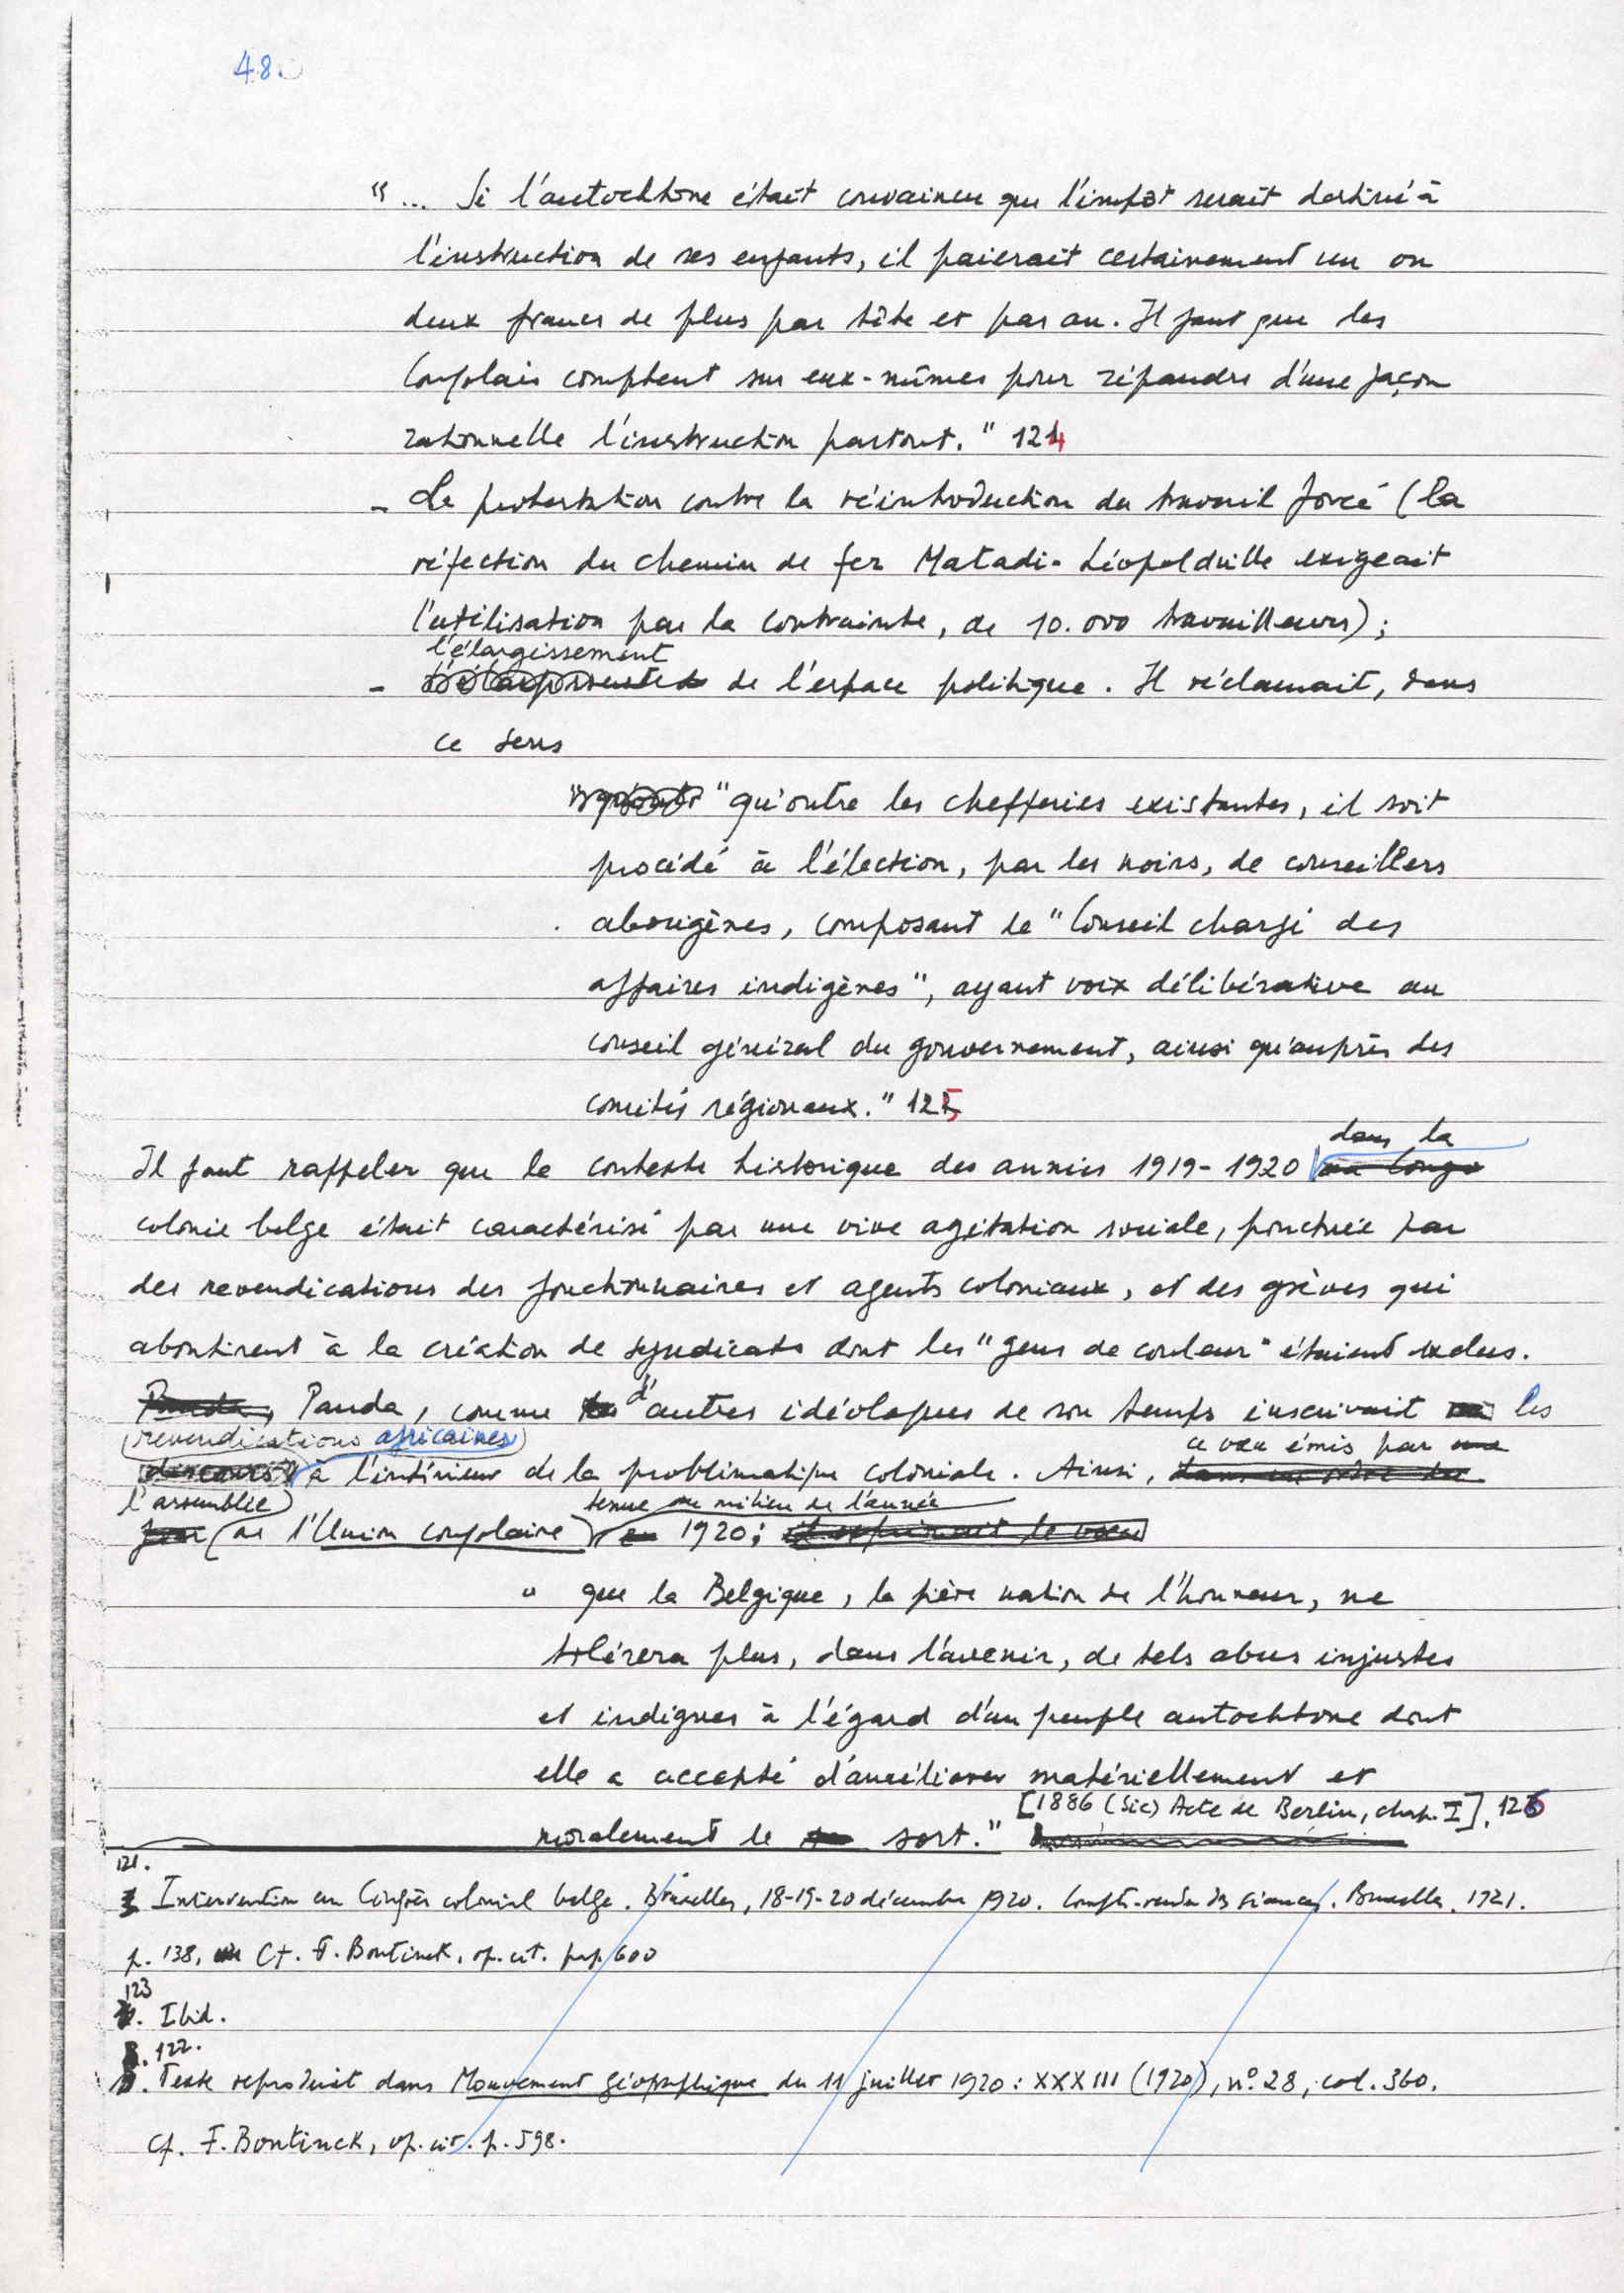 48.
"... Si l'autochtone était convaincu que l'impôt serait destiné à
l'instruction de ses enfants, il paierait certainement un ou
deux francs de plus par tête et par an. Il faut que les
Congolais comptent sur eux-mêmes pour répandre d'une façon
rationnelle l'instruction partout." 124
- La protestation contre la réintroduction du travail forcé (la
réfection du chemin de fer Matadi-Léopoldville exigeait
l'utilisation par la contrainte, de 10.000 travailleurs);
l'élargissement
- de l'espace politique. Il réclamait, dans
ce sens
"qu'outre les chefferies existantes, il soit
procédé à l'élection, par les noirs, de conseillers
aborigènes, composant le "Conseil chargé des
affaires indigènes", ayant voix délibérative au
conseil général du gouvernement, ainsi qu'auprès des
comités régionaux." 125
dans la
Il faut rappeler que le contexte historique des années 1919-1920 au Congo
colonie belge était caractérisé par une vive agitation sociale, ponctuée par
des revendications des fonctionnaires et agents coloniaux, et des grèves qui
aboutirent à la création de syndicats dont les "gens de couleur" étaient exclus.
Panda, Panda, comme d'autres idéologues de son temps inscrivait les
revendications africaines ce vœu émis par
discours à l'intérieur de la problématique coloniale. Ainsi,
l'assemblée tenue au milieu de l'année
de l'Union congolaise en 1920: il exprimait le vœu
" que la Belgique, la fière nation de l'honneur, ne
tolérera plus, dans l'avenir, de tels abus injustes
et indignes à l'égard d'un peuple autochtone dont
elle a accepté d'améliorer matériellement et
[1886 (sic) Acte de Berlin, chap. I]. 126
moralement le sort."
121.
Intervention au Congrès colonial belge. Bruxelles, 18-19-20 décembre 1920. Compte-rendu des séances. Bruxelles. 1921.
p. 138, Cf. F. Bontinck, op. cit. p. 600
123
Ibid.
122.
Texte reproduit dans Mouvement géographique du 11 juillet 1920: XXXIII (1920), n° 28, col. 360.
Cf. F. Bontinck, op. cit. p. 598.